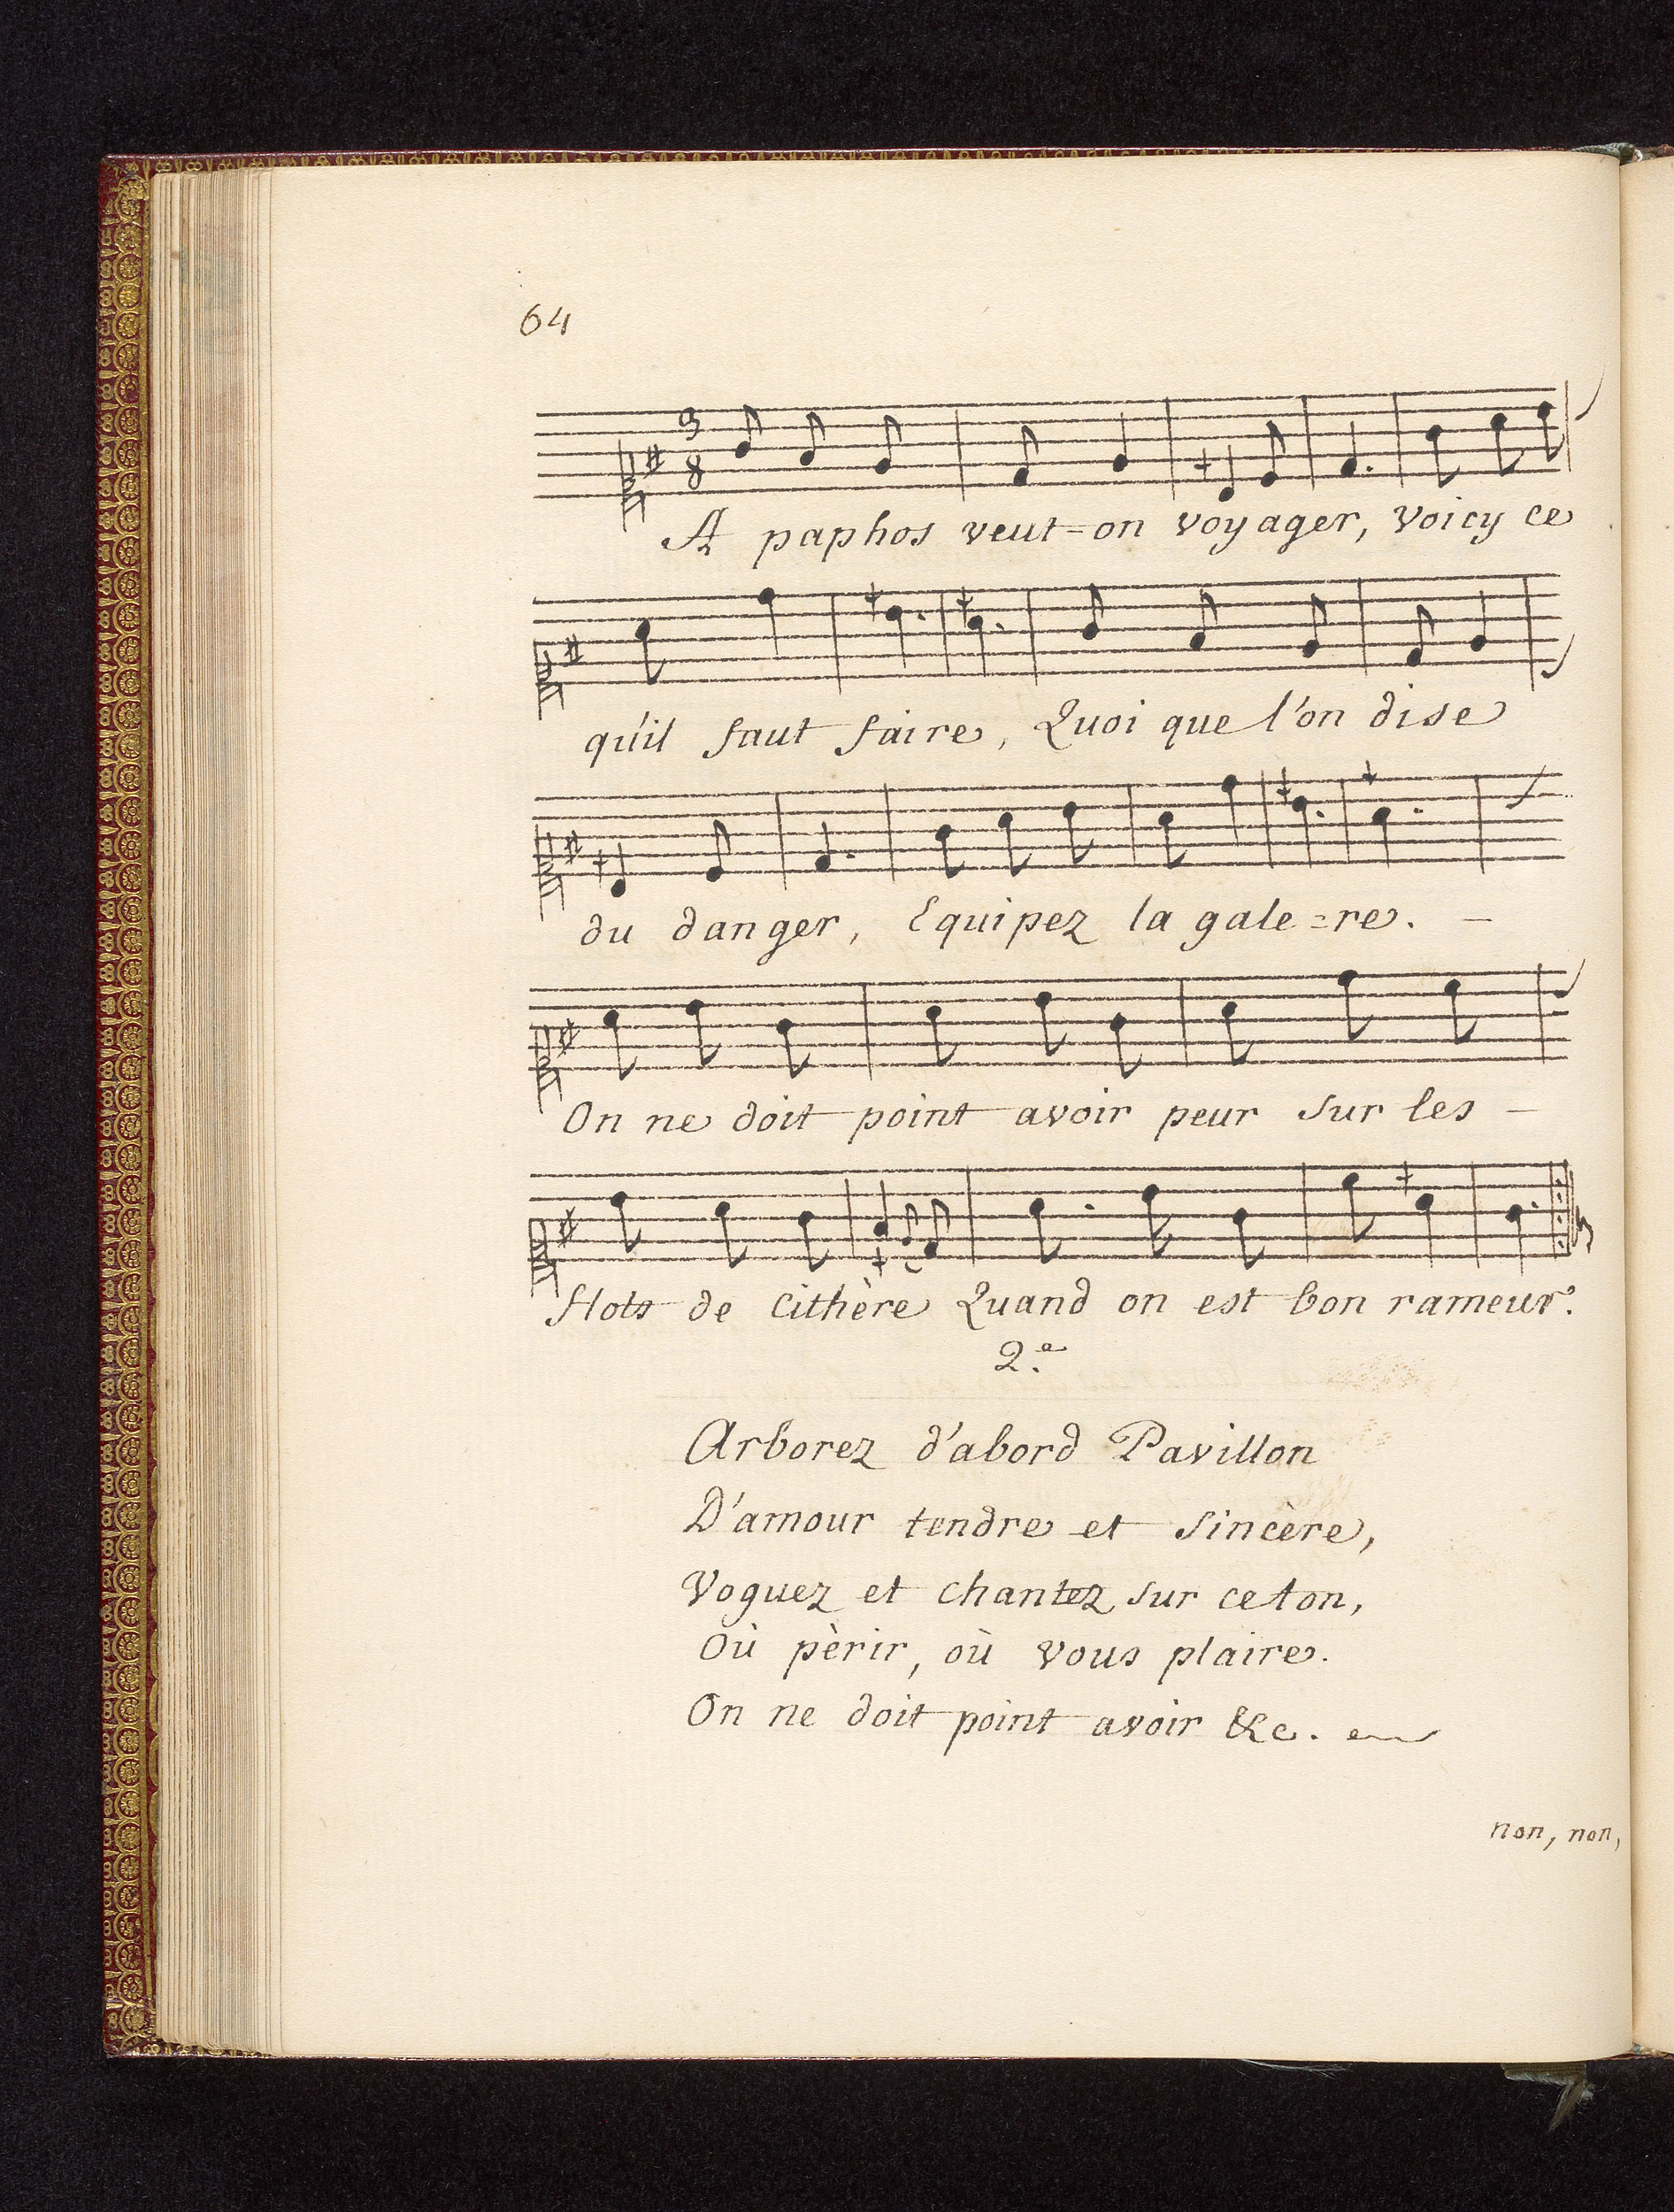 64
3
8
A paphos veut=on voyager, voicy ce
qu'il faut faire, Quoi que l'on dise
du danger, Equipez la gale=re. —
On ne doit point avoir peur sur les —
flots de Cithère Quand on est bon rameur.
2.e
Arborez d'abord Pavillon
D'amour tendre et sincère,
Voguez et chantez sur ce ton,
Où pèrir, où vous plaire.
On ne doit point avoir &c.
non, non,